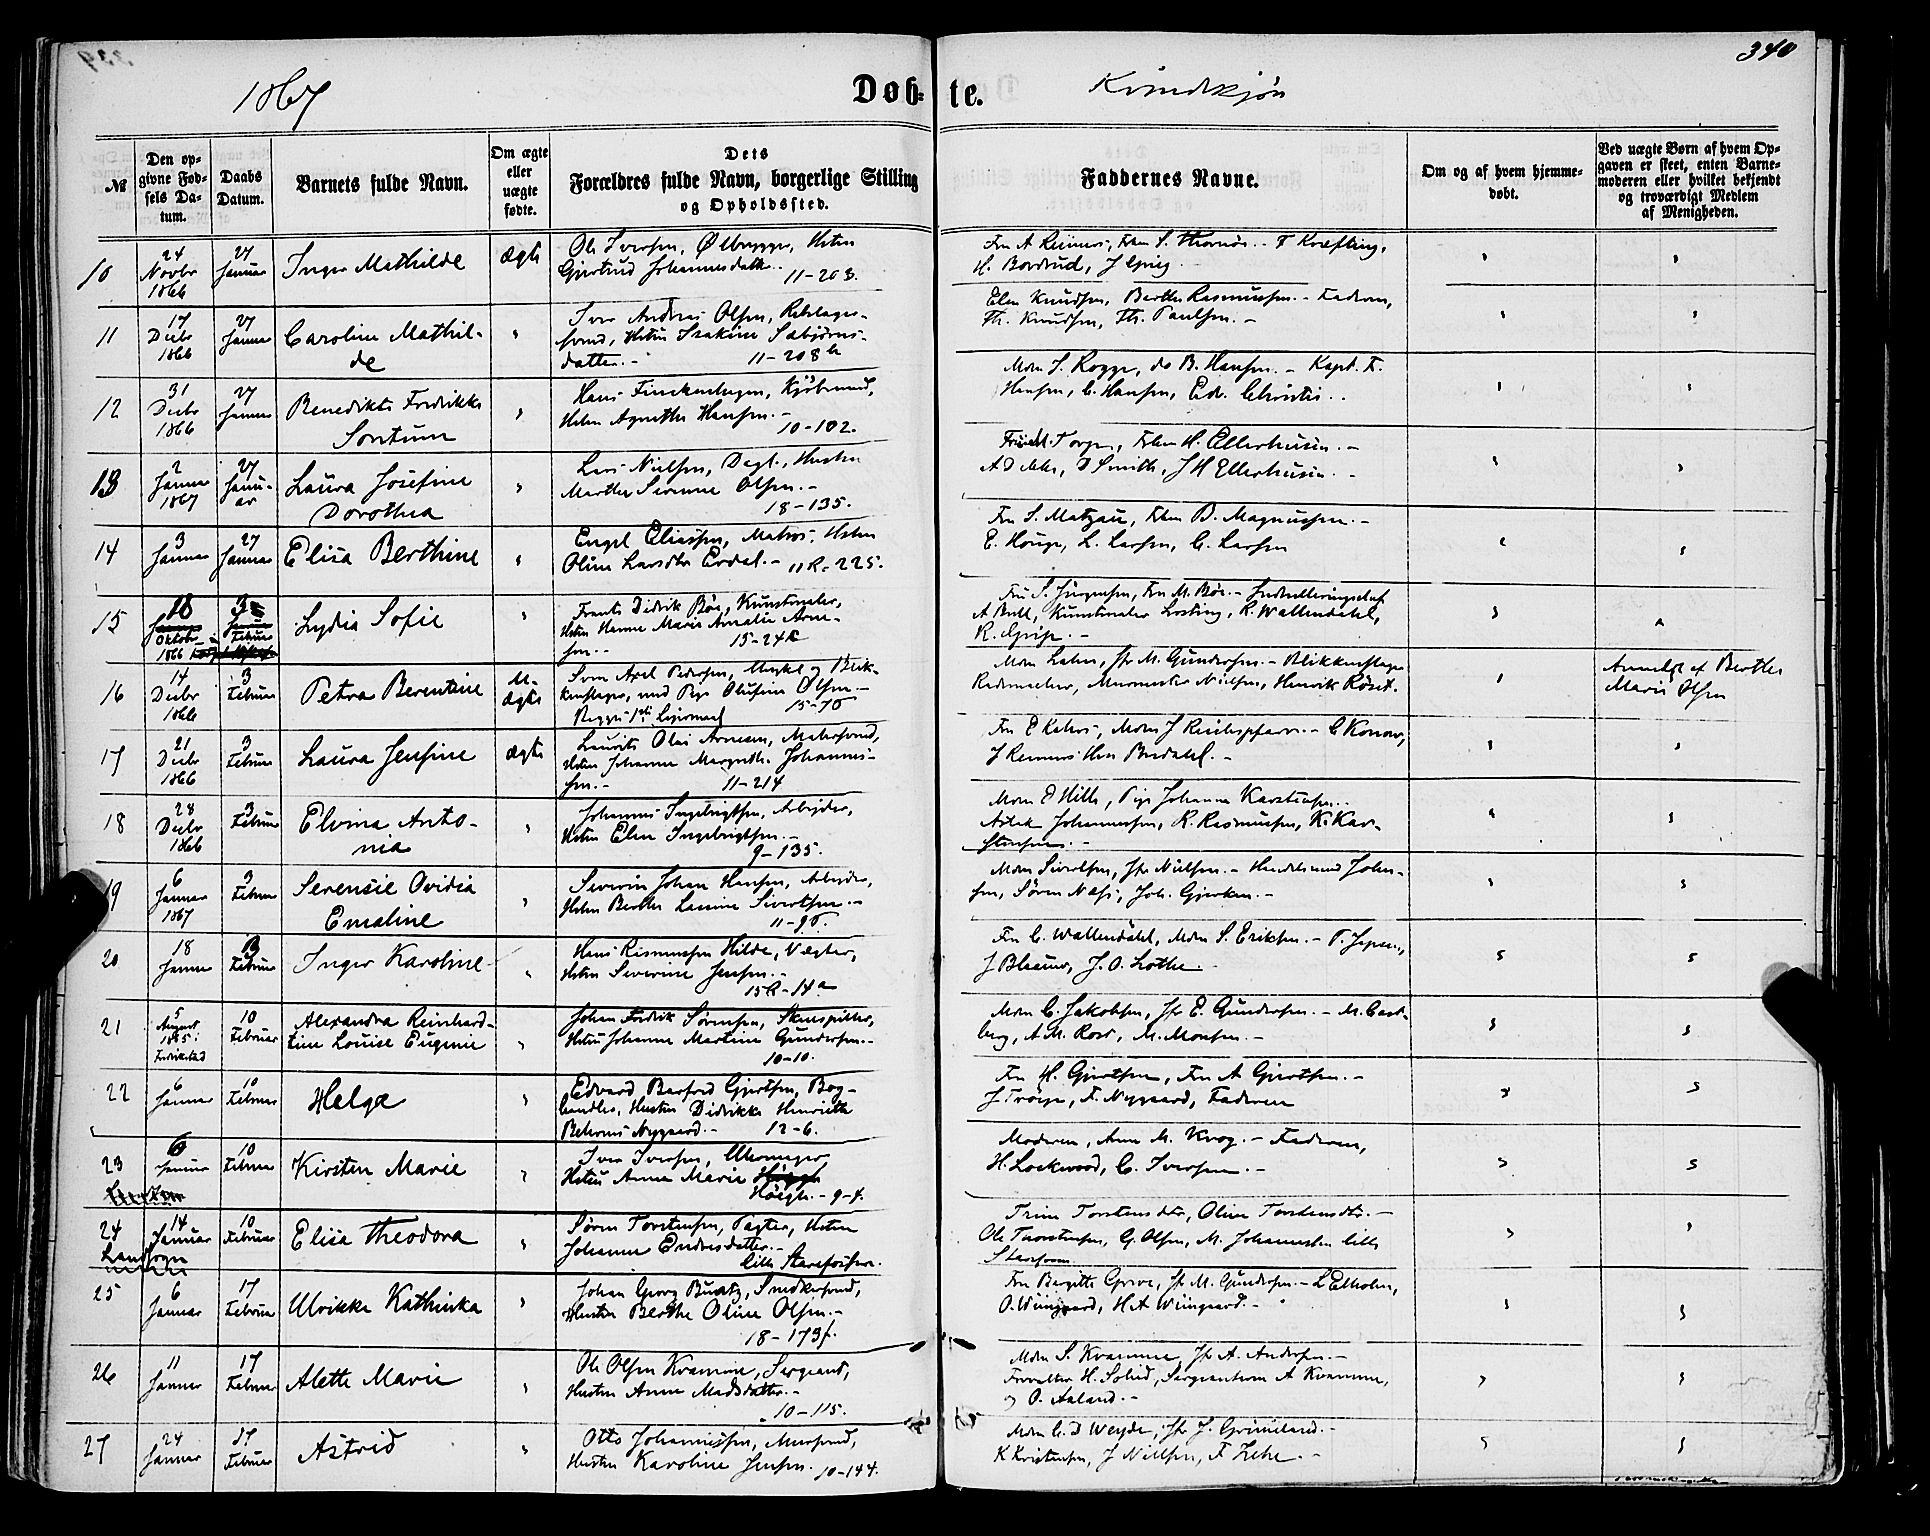 340
1867
Døb- te.
Kvindekjøn
№
Den opgivne Fødsels Datum.
Daabs Datum.
Barnets fulde Navn.
Om ægte eller uægte fødte.
Dets Forældres fulde Navn, borgerlige Stilling og Opholdssted.
Faddernes Navne.
Om og af hvem hjemmedøbt.
Ved uægte Børn af hvem Opgaven er skeet, enten Barnemoderen eller hvilket bekjendt og troværdigt Medlem af Menigheden.
10
24 Novbr 1866
27 Januar
Inger Mathilde
Ægte
Ole Iversen, Ølbrygger, Hstru
Gjertrud Johannesdatter.
11-203.
H. Bordrud, J Grieg
11
17 Decbr 1866
27 Januar
Caroline Mathil-
de
Iver Andreas Olsen, Rebslager-
svend, Hstru
datter.-
11-208b
Elen Knudsen, Berthe Rasmussen.- Faderen,
Th. Knudsen, Th. Paulsen.-
12
31 Decbr 1866
27 Januar
Benedikte Fredrikke
Sontum
Hans Finckenhagen, Kjøbmand,
Hstru Agnethe Hansen.-
10-102.
Mdm S. Rogge, do B. Hansen.- Kapt. F.
Hansen, C. Hansen, Edv. Christie.
13
2 Januar 1867
27 Janu-
ar
Laura Josefine
Dorothea
Lars Nielsen, Hustru
Marthe Severine Olsen.-
18-135.
H. Ellerhusen.-
D Smith, J H Ellerhusen.-
14
3 Januar
27 Januar
Elisa Berthine
Engel Eliassen, Matros, Hstru
Oline Larsdtr Erdal.- 11R-225.
Fru S. Matzau, B. Magnussen.-
E. Houge, L. Larsen, C. Larsen
15
18
Oktober
1866
3
Februar
Lydia Sofie
Frants Didrik Bøe, Kunstmaler,
Hstru Hanne Marie Amalie Arne-
sen.-
15-24
Fru S. Jürgensen, Fru M. Bøe.-
A Bull, Kunstmaler Losting, R. Wallendahl,
16
14 Decbr 1866
3 Februar
Petra Berentine
U-
ægte
Sven Axel Pedersen, Ungkarl og Blik-
kenslager, med Pige Olufine Olsen.-
Begges 1ste Leiermaal
15-70
Mdm Lahn, Jfr M. Gundersen.- Blikkenslager
Rademacher, Murmester Nielsen, Henrik Røset.
Anmeldt af Berthe
Marie Olsen
17
21 Decbr 1866
3 Februar
Laura Jensine
Ægte
Laurits Olai Arnesen, Malersvend,
Hstru Johanne Margrethe Johannes-
sen.-
11-214
C Konow,
18
28 Decbr 1866
3 Februar
Elvina Anto-
nia
Johannes Ingebrigtsen, Arbeider,
Hstru Elen Ingebrigtsen.-
9-135.
Mdm E Hille, Pige Johanne Karstensen.
Johannessen, R. Rasmussen, K. Kar-
stensen.-
19
6 Januar 1867
3 Februar
Serensie Ovidia
Emaline
Severin Johan Hansen, Arbeider,
Hstru Berthe Lavine Sivertsen.-
11-90.
Mdm Sivertsen, Jfr Nielsen.-
sen, Søren Næss, Joh. Gjerken.-
20
18 Januar
3 Februar
Inger Karoline
Hans Rasmussen Hilde, Vægter,
Hstru Severine Jensen.-
15R-14a
Fru C. Wallendahl, Mdm S. Eriksen.- P. Jepsen,
J. O. Lothe
21
5 August
1865
Fredrikstad
10 Februar
Alexandra Reinhard-
tine Louise Eugenie
Johan Fredrik Sørensen, Skuespiller,
Hstru Johanne Martine Gundersen.-
10-10.
Mdm C. Jakobsen, Jfr E. Gundersen.- M. Cast-
berg, A M. Rose, M. Monsen.-
22
6 Januar
10 Februar
Helga
Edvard Barford Gjertsen, Bog-
handler, Hustru Didrikke Henriette
Behrens Nygaard.-
12-6.
Fru H. Gjertsen, Fru A Gjertsen.-
F. Nygaard, Faderen
23
6 Januar
10 Februar
Kirsten Marie
Iver Iversen, Uhrmager,
Hstru Anna Marie
Høegh.- 9-4.
Moderen, Anne M. Krog.- Faderen,
H. Lockwood, C. Iversen.-
24
Landsogn
14 Januar
10 Februar
Elisa Theodora
Søren Torstensen, Pagter, Hstru
Johanne Endresdatter.-
lille Starefossen.
Trine Torstensdtr, Oline Torstensdtr.-
Ole Thorstensen, G. Olsen, M. Johannesen lille
Starefossen
25
6 Januar
17 Februar
Ulrikke Kathinka
Johan Georg Buatz, Snedkersvend,
Hustru Berthe Oline Olsen.-
18-173f.
Fru Birgitte Greve, Jfr M. Gundersen.- L Elholm,
O. Wiingaard, H A Wiingaard.-
26
11 Januar
17 Februar
Alette Marie
Ole Olsen Kvamme, Sergeant,
Hustru Anne Madsdatter.-
10-115.
Mdm S. Kvamme, Jfr A. Andersen.-
Forvalter H. Solied, Sergeanterne A Kvamme,
og O. Aaland.-
27
24 Januar
17 Februar
Astrid
Otto Johannessen, Mursvend,
Hustru Karoline Jensen. 10-144.
Mdm C. D Weyde, Jfr J. Grimeland.-
K Kristensen, J Nielsen, F. Zehe.-